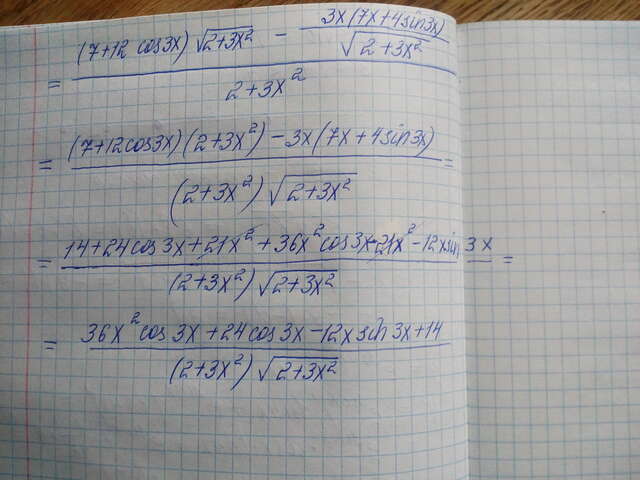 = ((7+12 cos3x) √(2+3x²) - 3x(7x+4sin3x)/√(2+3x²)) / (2+3x²)
= ((7+12cos3x)(2+3x²)-3x(7x+4sin3x)) / ((2+3x²)√(2+3x²)) =
= (14+24cos3x+21x²+36x²cos3x-21x²-12xsin3x) / ((2+3x²)√(2+3x²)) =
= (36x²cos3x+24cos3x-12xsin3x+14) / ((2+3x²)√(2+3x²))